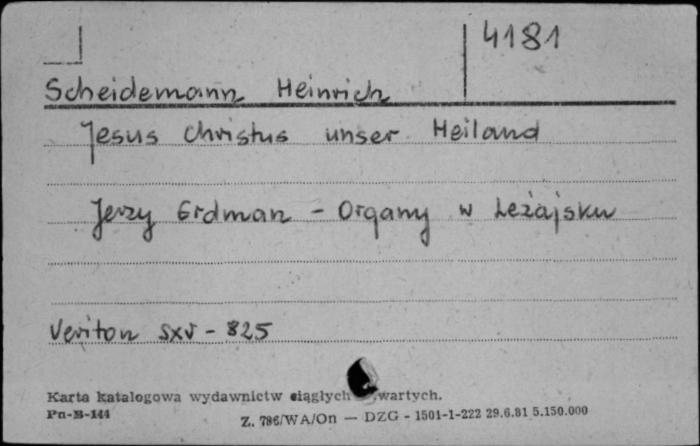 4181
Scheidemann Heinrich
Jesus Christus unser Heiland
Jerzy Erdman - Organy w Leżajsku
Veriton sxv - 825
Karta katalogowa wydawnictw ciągłych wartych.
Pu-B-144
Z. 786/WA/On — DZG - 1501-1-222 29.6.81 5.150.000